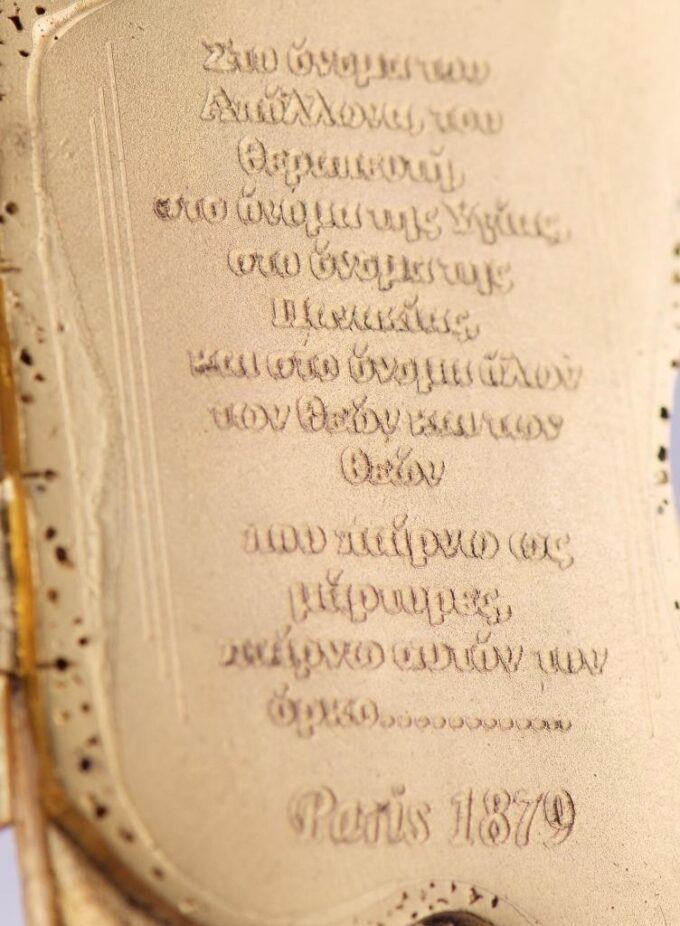 Στο όνομα του
Απόλλωνα, του
θεραπευτή,
στο όνομα της Υγείας,
στο όνομα της
Πανακείας,
και στο όνομα όλων
των θεών και των
θεών
που παίρνω ως
μάρτυρες,
παίρνω αυτόν τον
όρκο............
Paris 1879